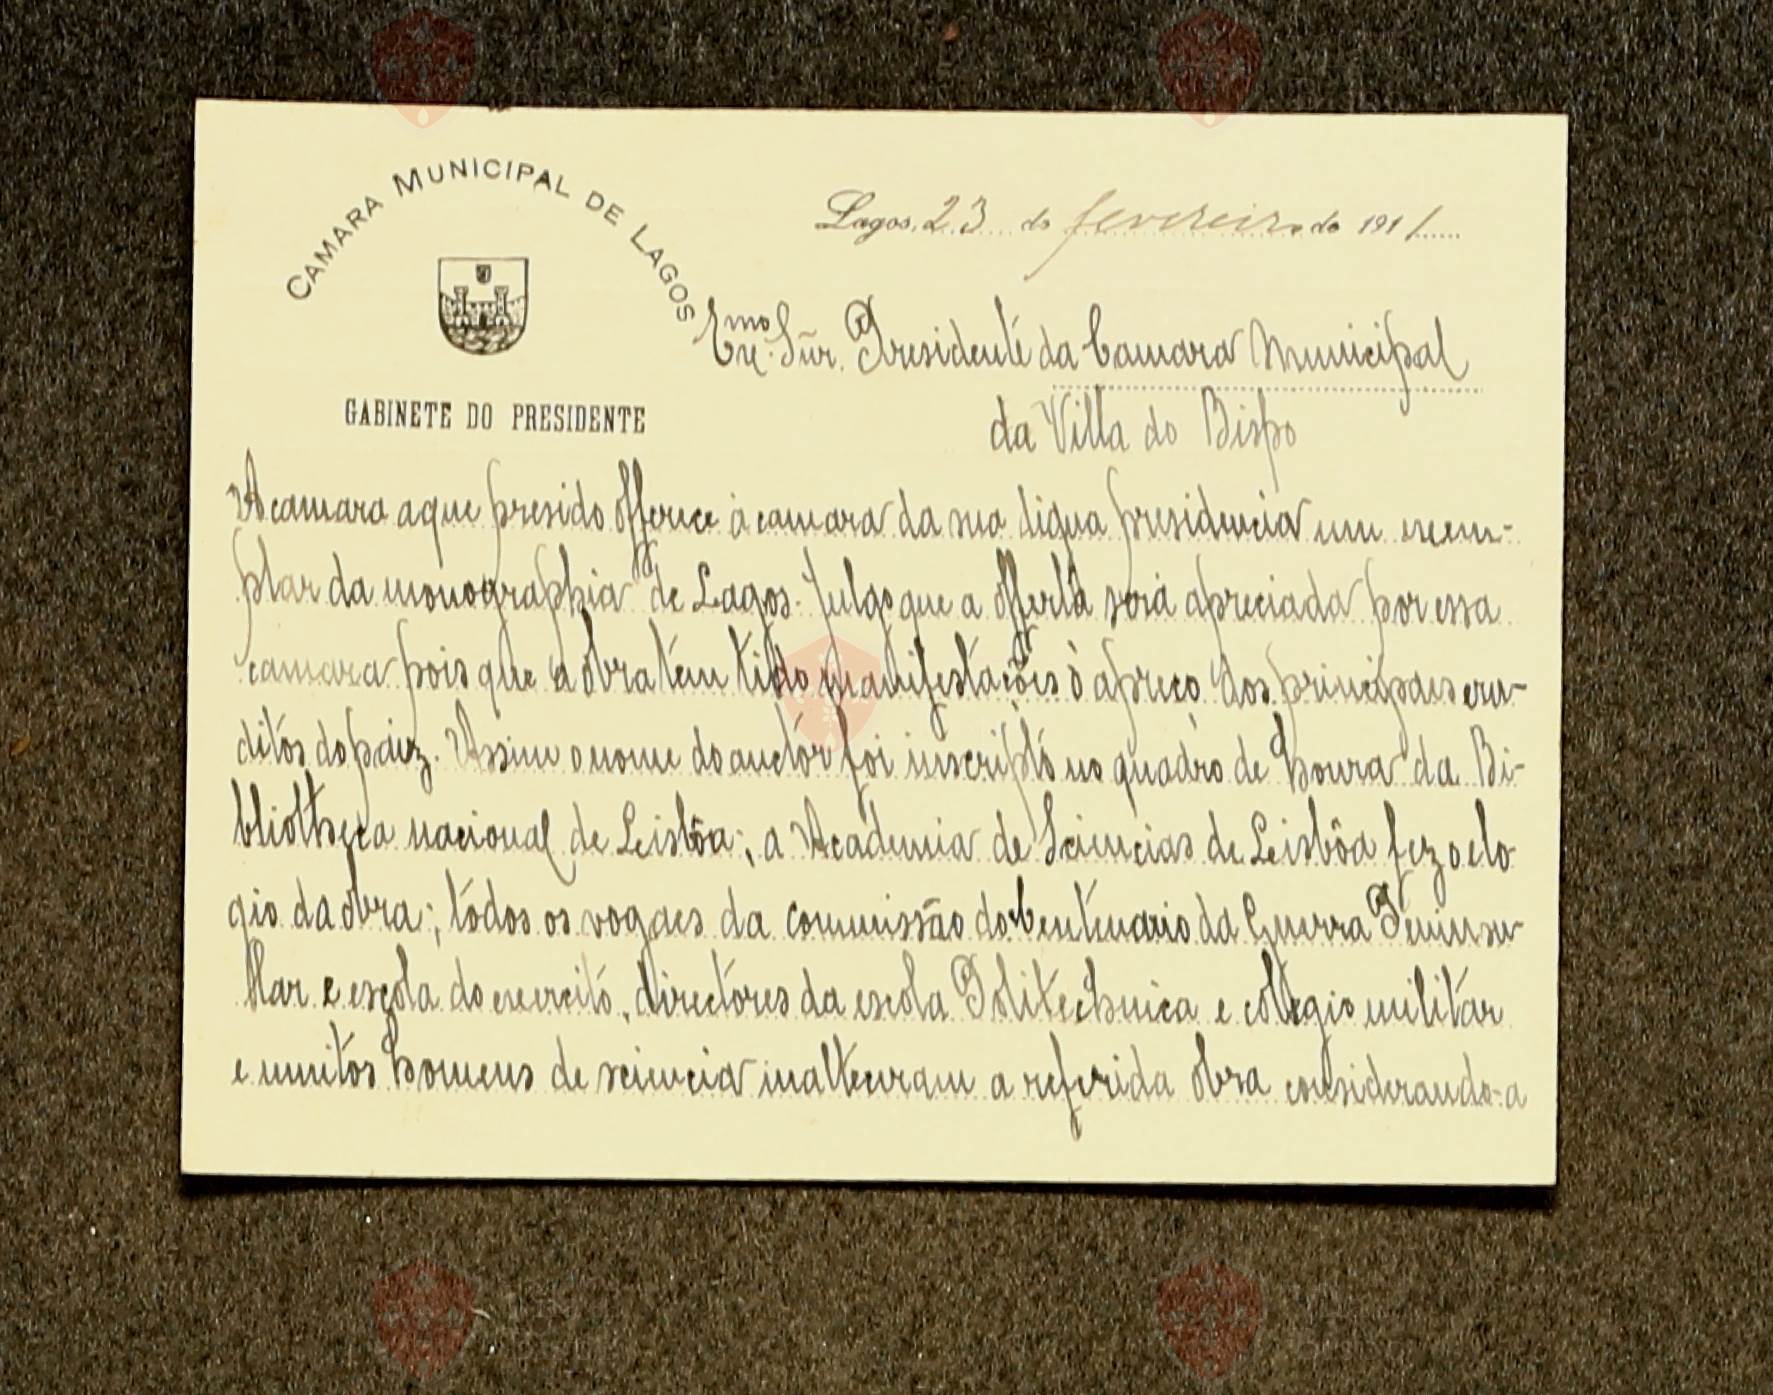 CAMARA MUNICIPAL DE LAGOS
GABINETE DO PRESIDENTE
Lagos, 23 de fevereiro de 1911
Exmo. Snr. Presidente da Camara Municipal
da Villa do Bispo
A camara a que presido offerece à camara da sua digna presidencia um exem-
plar da monographia de Lagos. Julgo que a offerta será apreciada por essa
camara pois que a obra tem tido manifestações d'apreço dos principaes eru-
ditos do paiz. Assim o nome do auctor foi inscripto no quadro de honra da Bi-
bliotheca nacional de Lisbôa; a Academia de Sciencias de Lisbôa fez o elo
gio da obra; todos os vogaes da commissão do Centenario da Guerra Peninsu
llar e escola do exercito, directores da escola Politechnica e collegio militar
e muitos homens de sciencia inalteceram a referida obra considerando-a